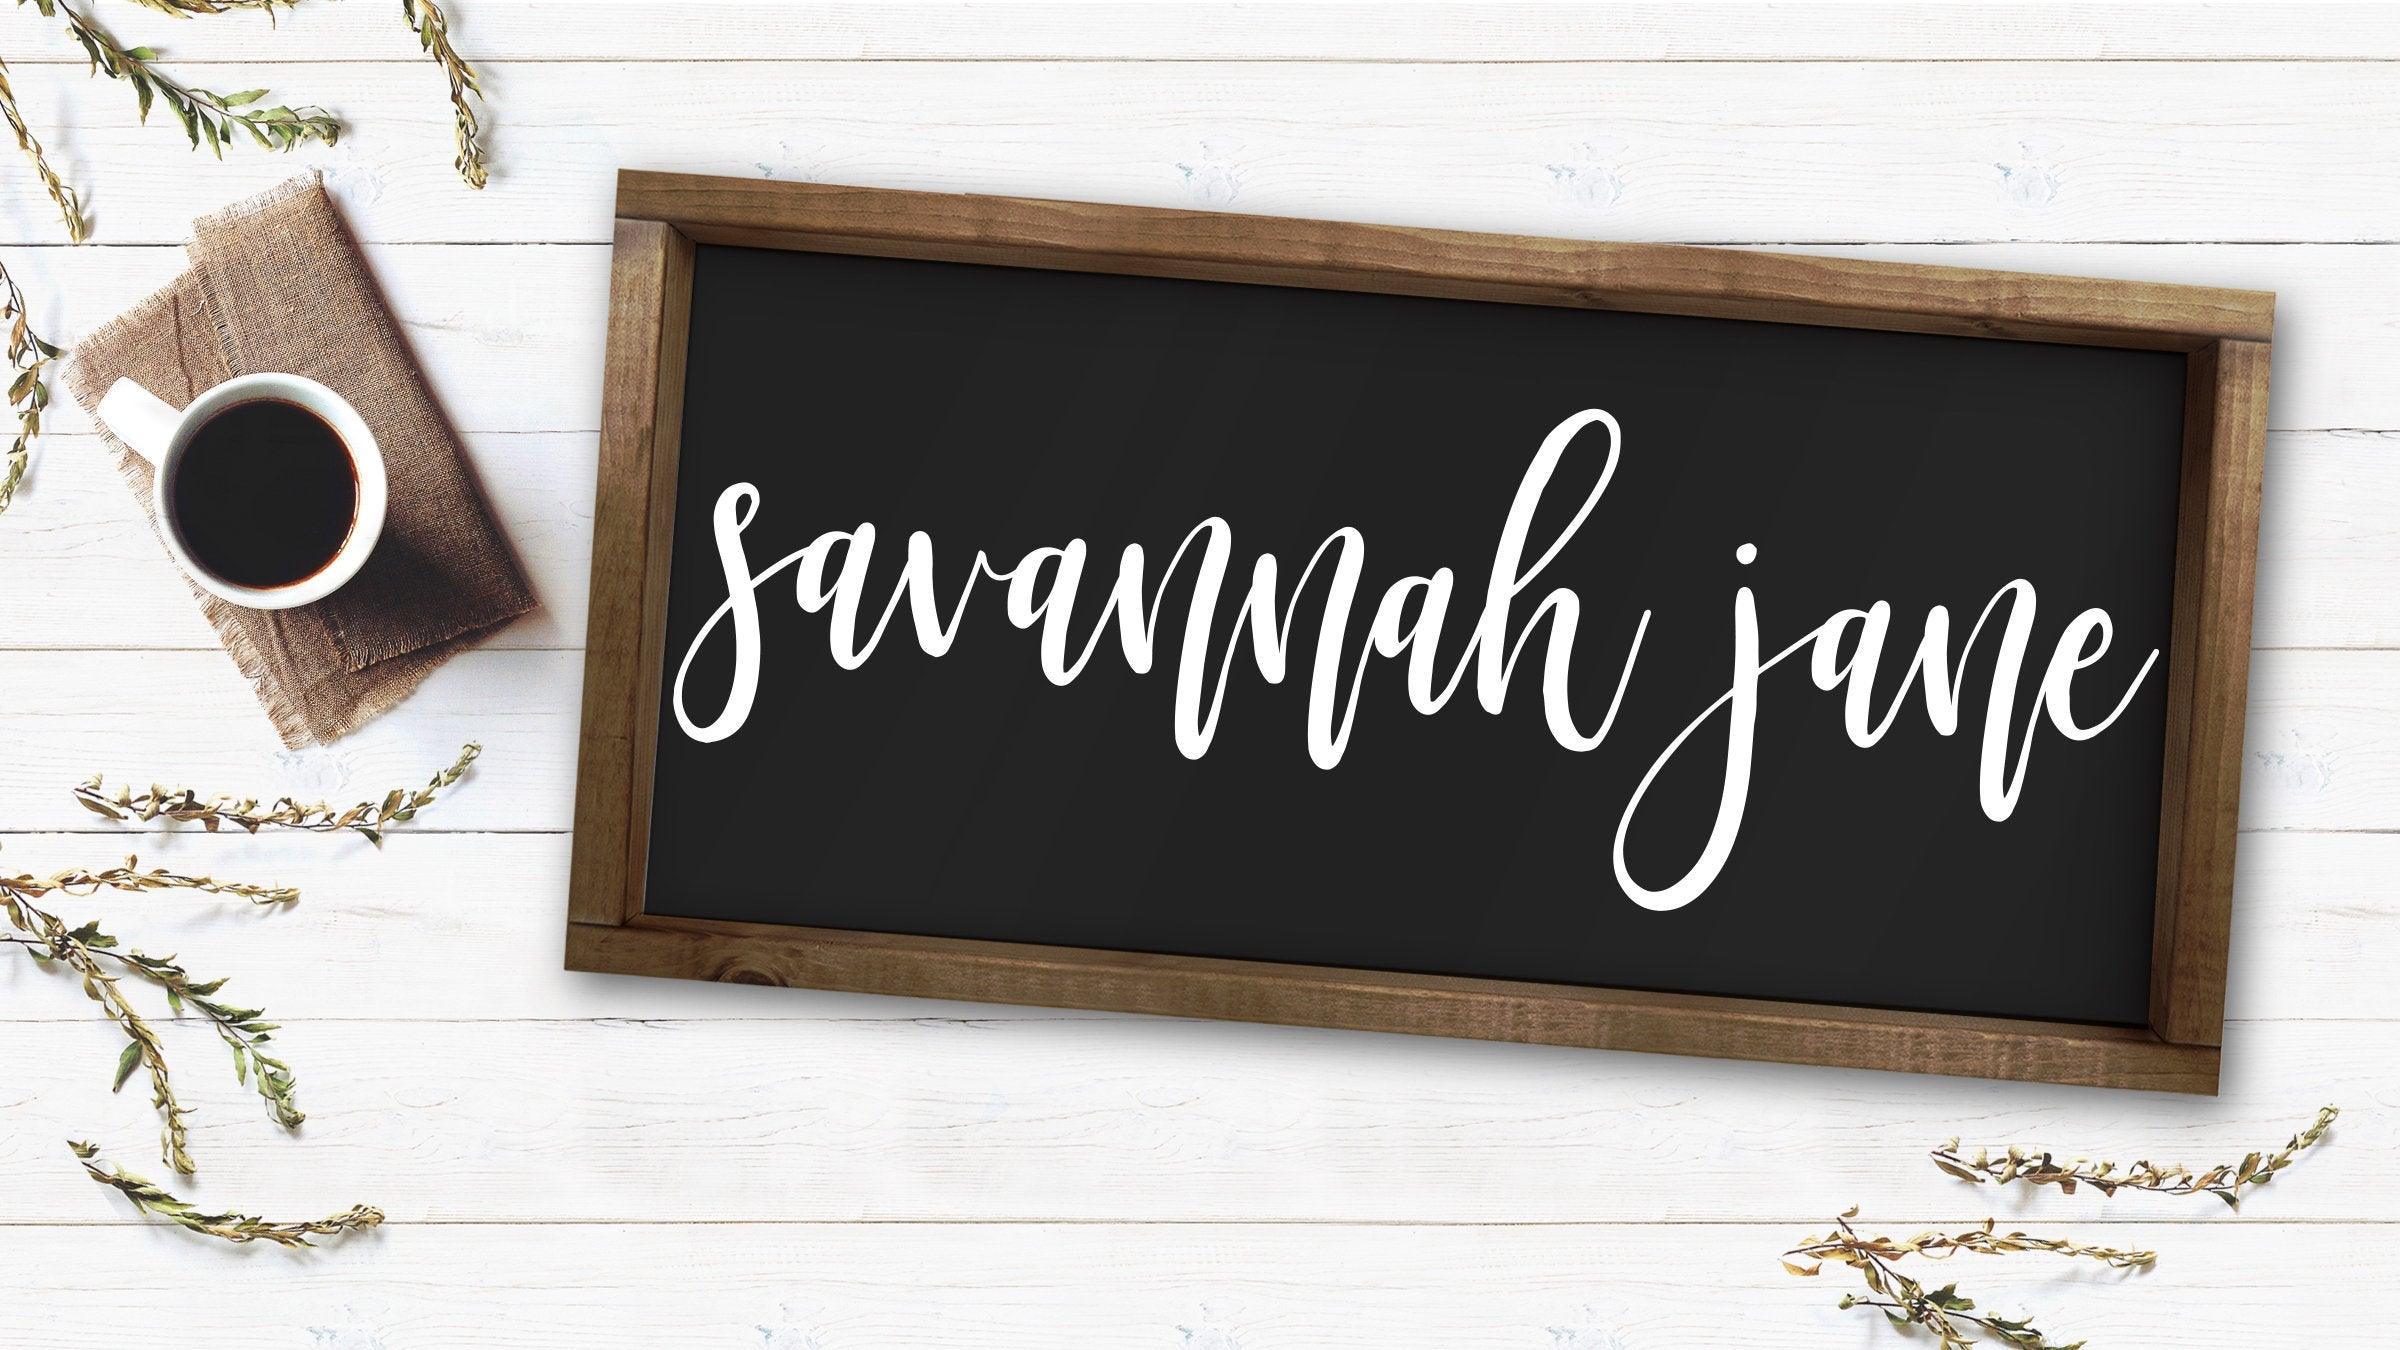 savannah jane